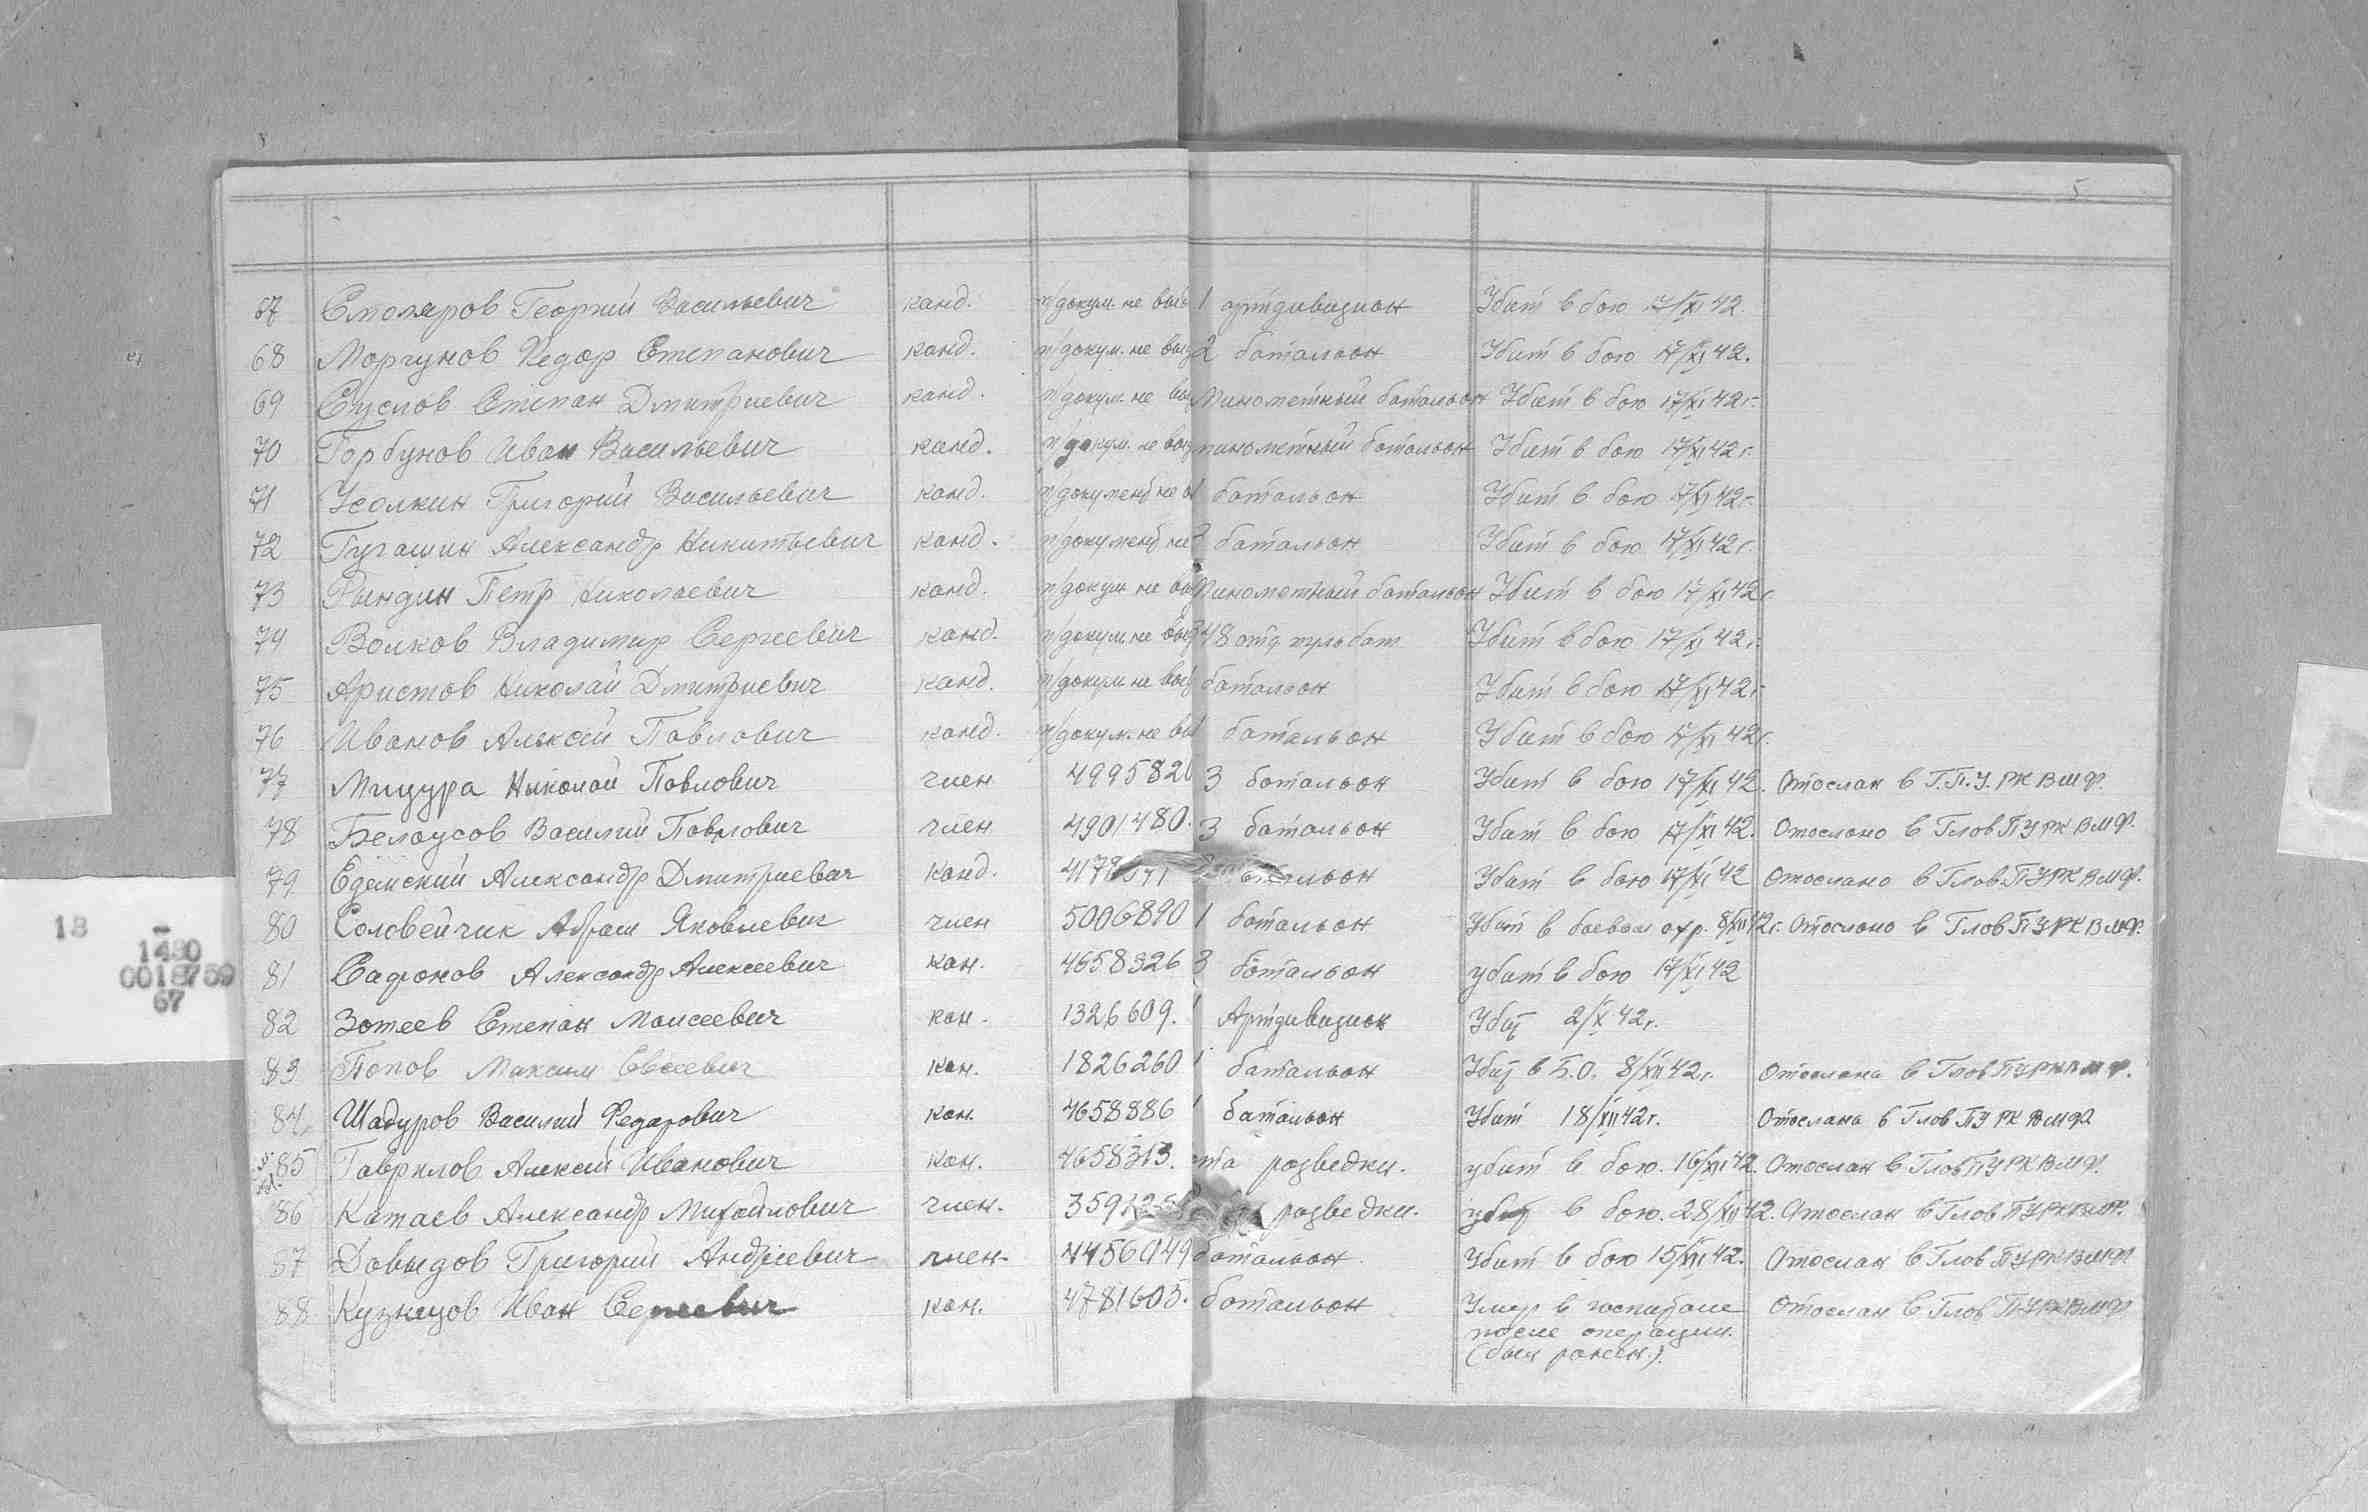 5
67 Столяров Георгий Васильевич канд. п/докум. не выд 1 артдивизион Убит в бою 17/XI 42.
68 Моргунов Федор Степанович канд. п/докум. не выд 2 батальон Убит в бою 17/XI 42.
69 Суслов Степан Дмитриевич канд. п/докум. не вы Минометный батальон Убит в бою 17/XI 42г.
70 Горбунов Иван Васильевич канд. п/докум. не выд минометный батальон Убит в бою 17/XI 42г.
71 Усолкин Григорий Васильевич канд. п/документ не батальон Убит в бою 17/XI 42г.
72 Гугашин Александр Никитьевич канд. п/документ не батальон Убит в бою 17/XI 42г.
73 Рындин Петр Николаевич канд. п/докум не вы Минометный батальон Убит в бою 17/XI 42г.
74 Волков Владимир Сергеевич канд. п/докум. не выд 48 отд пульбат Убит в бою 17/XI 42г.
75 Аристов Николай Дмитриевич канд. п/докум не выд батальон Убит в бою 17/XI 42г.
76 Иванов Алексей Павлович канд. п/докум. не вы батальон Убит в бою 17/XI 42г.
77 Мицура Николай Павлович член 4995820 3 батальон Убит в бою 17/XI 42. Отослан в Г.П.У. РК ВМФ.
78 Белоусов Василий Павлович член 4901480. 3 батальон Убит в бою 17/XI 42. Отослано в Глав ПУРК ВМФ.
79 Едемский Александр Дмитриевич канд. батальон Убит в бою 17/XI 42 Отослано в Глав.ПУРК ВМФ.
80 Соловейчик Абрам Яковлевич член 5006890 1 батальон Убит в боевом охр. 8/XII 42г. Отослано в Глав ПУРК ВМФ.
81 Сафонов Александр Алексеевич кан. 4658326 3 батальон убит в бою 17/XI 42
82 Зотеев Степан Моисеевич кан. 1326609. 1 Артдивизион Убит 2/X 42г.
83 Попов Максим Евсеевич кан. 1826260 1 батальон Убит в Б.О. 8/XII 42г. Отослана в Глав ПУРКВМФ.
84 Шадуров Василий Федорович кан. 4658886 батальон Убит 18/XII 42г. Отослана в Глав ПУ РК ВМФ
85 Гаврилов Алексей Иванович кан. 4658313. та разведки. убит в бою. 16/XII 42. Отослан в Глав ПУРКВМФ.
86 Катаев Александр Михайлович член. разведки. убит в бою. 28/XII 42. Отослан в Глав ПУРКВМФ.
87 Давыдов Григорий Андреевич член. 4456949 батальон Убит в бою 15/XII 42. Отослан в Глав ПУРКВМФ
88 Кузнецов Иван Сергеевич кан. 4781605. батальон Умер в госпитале Отослан в Глав ПУРКВМФ
после операции.
(был ранен.).
13
1480
0018759
67